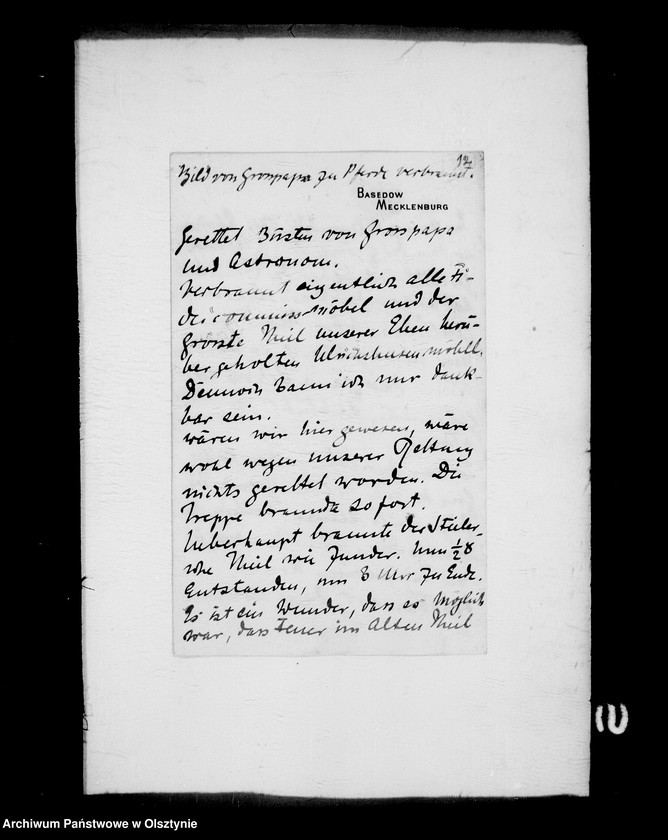 12
Bild von Grosspapa zu Pferde verbrannt.
BASEDOW
MECKLENBURG
Gerettet Büsten von Grosspapa
und Astronom.
Verbrannt eigentlich alle Fi-
deicommiss möbel und der
grösste Theil unserer Eben herü-
bergeholten Ulrichshusen möbel.
Dennoch kann ich nur dank-
bar sein.
wären wir hier gewesen, wäre
wohl wegen unserer Rettung
nichts gerettet worden. Die
Treppe brannte sofort.
Ueberhaupt brannte der Stüler-
sche Theil wie Zunder. Um ½ 8
Entstanden, um 8 Uhr zu Ende.
Es ist ein Wunder, dass es möglich
war, dass Feuer im Alten Theil
Archiwum Państwowe w Olsztynie